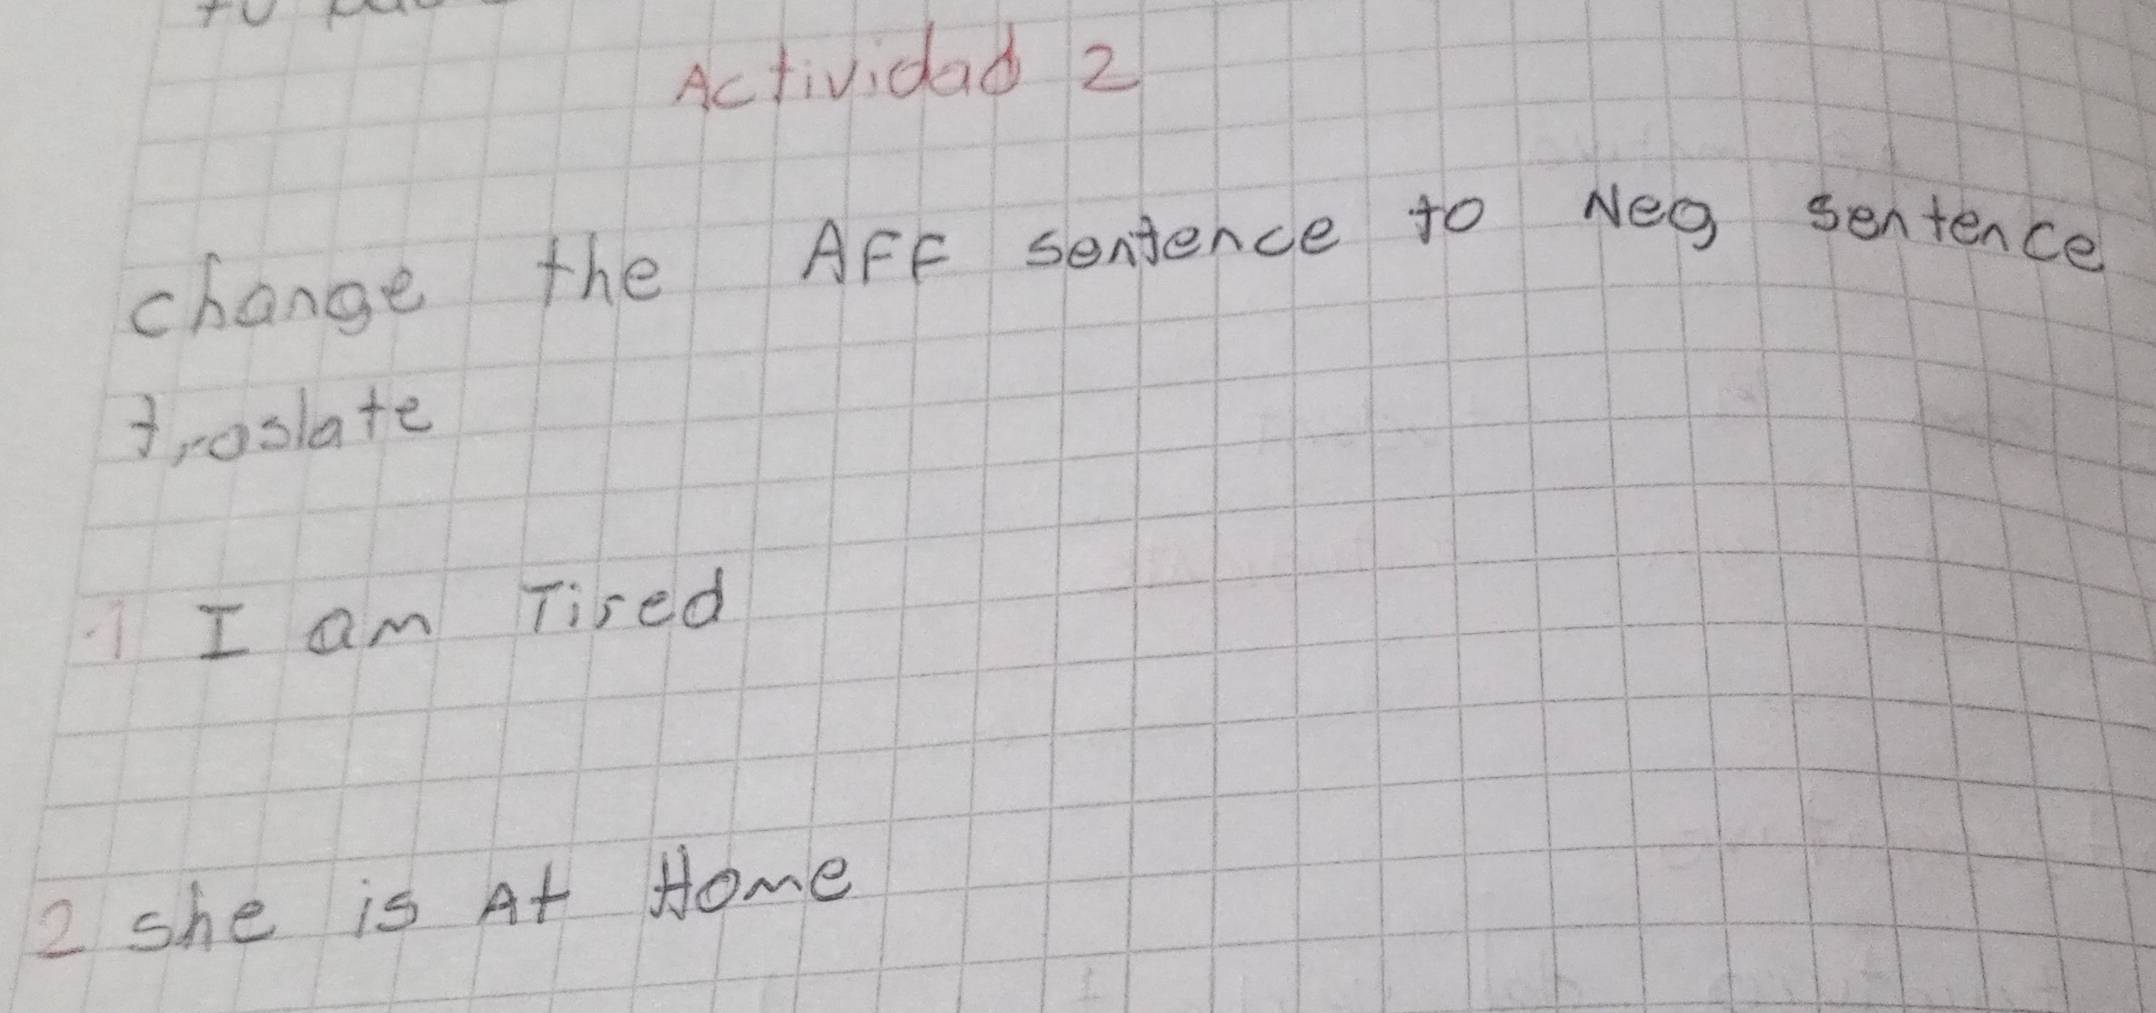 Actividad 2
change the AFF sentence to Neg sentence
traslate
1 I am Tired
2 she is At Home